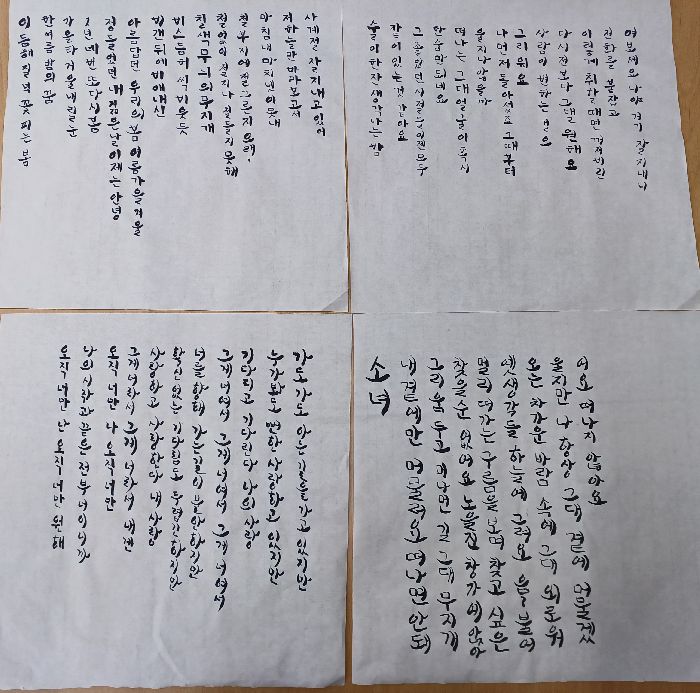 이듬해 질녘 꽃 피는 봄
한여름 밤의 꿈
가을 타 겨울 내릴 눈
1년 네번 또 다시 봄
정들었던 내 젊은 날 이제는 안녕
아름답던 우리의 봄 여름 가을 겨울
비갠 뒤에 비애 대신
비스듬히 씩 비웃듯
칠색 무늬의 무지개
철없이 철지나 철들지 못해
철부지에 철 그른지 오래,
마침내 마치 넷이 못내
저 하늘만 바라보고서
사계절 잘 지내고 있어
술이 한잔 생각나는 밤
같이 있는 것 같아요
그 좋았던 시절들 이젠 모두
한숨만 되네요
떠나는 그대 얼굴이 혹시
울지나 않을까
나 먼저 돌아섰죠 그때부터
그리워요
사람이 변하는 걸요
다시 전보다 그대 원해요
이렇게 취할 때면 꺼져버린
전화를 붙잡고
여보세요 나야 거기 잘 지내니
가도 가도 아는 길을 가고 있지만
누가 봐도 뻔한 사랑하고 있지만
기다리고 기다린다 나의 사랑
그게 너여서 그게 너여서 그게 너여서
너를 향해 가는 길이 불안하지만
확신 없는 기다림도 두렵긴하지만
사랑하고 사랑한다 내 사랑
그게 너라서 그게 너라서 내겐
오직 너만 나 오직 너만
나의 시작과 끝은 전부 너이니까
오직 너만 난 오직 너만 원해
소녀
내 곁에만 머물러요 떠나면 안돼
그리움 두고 머나먼 길 그대 무지개
찾을순 없어요 노을진 창가에 앉아
멀리 떠가는 구름을 보며 찾고 싶은
옛 생각들 하늘에 그려요 음~ 불어
오는 차가운 바람 속에 그대 외로워
울지만 나 항상 그대 곁에 머물겠
어요 떠나지 않아요